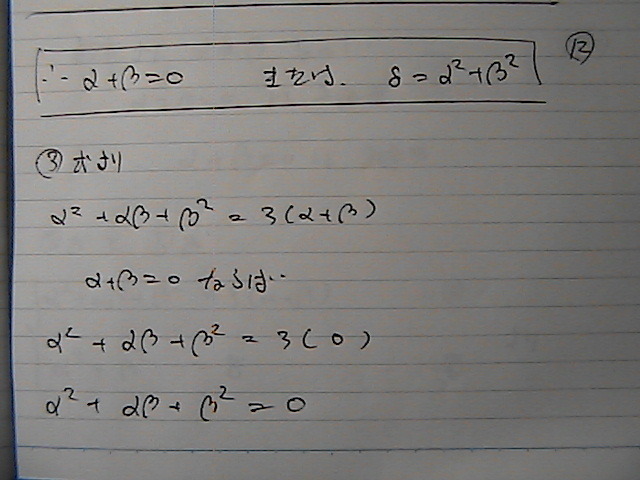 ∴ α+β=0 または. 8=α²+β² ⑫
③式より
α²+αβ+β² = 3(α+β)
α+β=0 ならば‥
α²+αβ+β² = 3(0)
α²+αβ+β² = 0